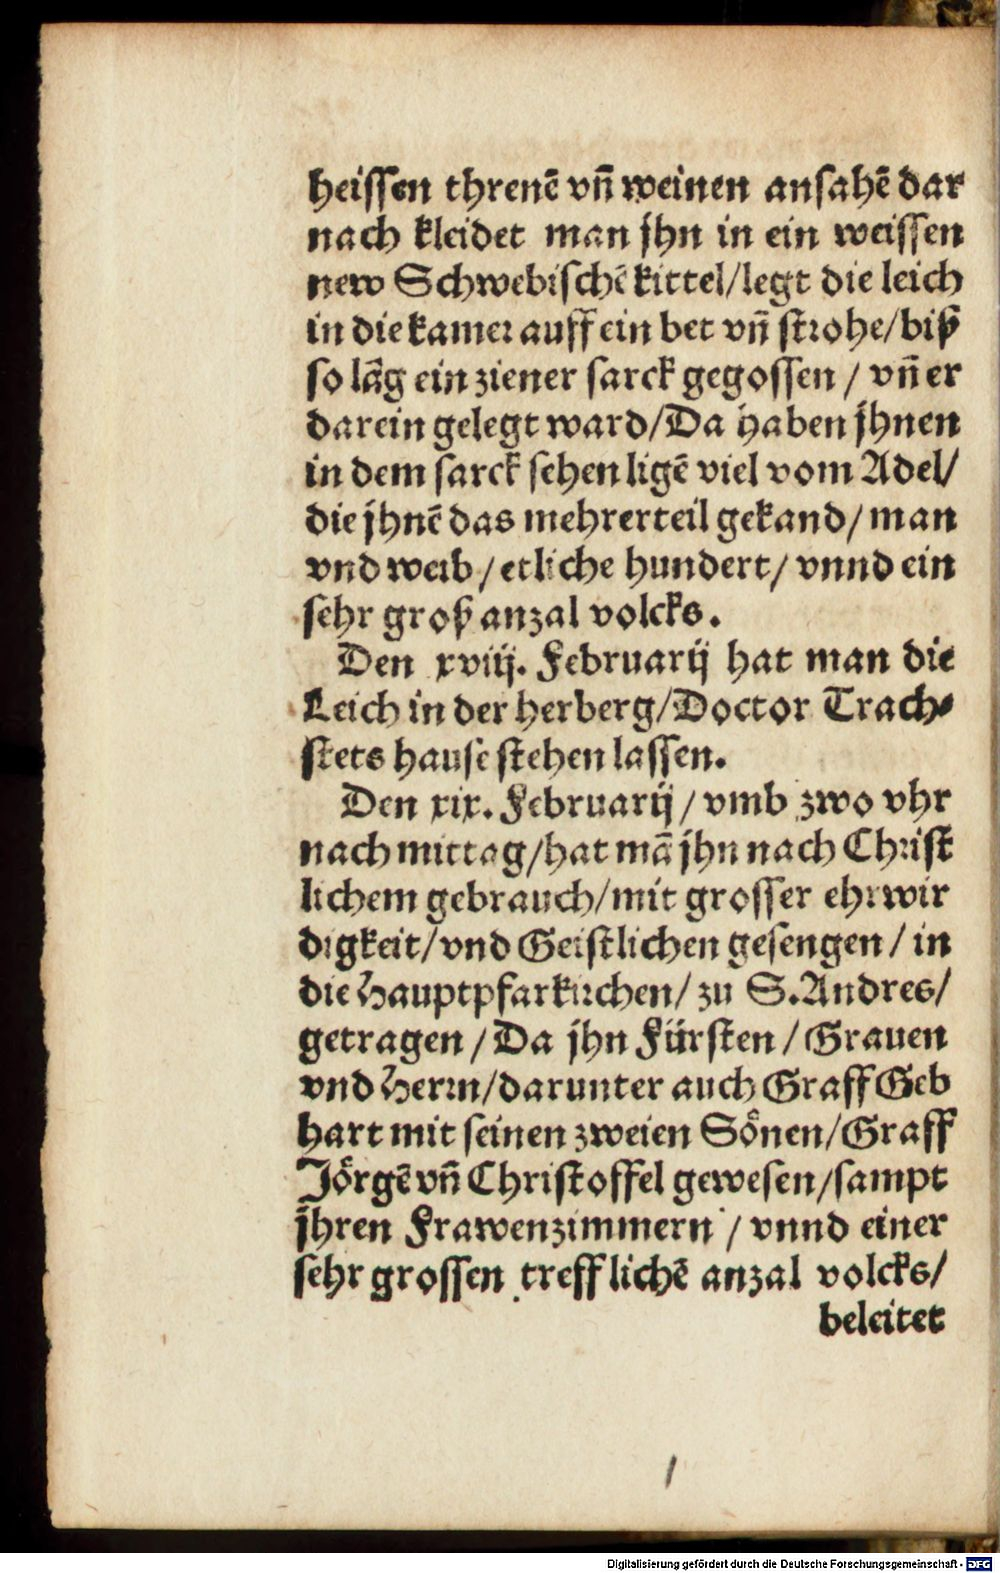 heissen threnē vñ weinen ansahē dar
nach kleidet man jhn in ein weissen
new Schwebischē kittel/legt die leich
in die kamer auff ein bet vñ strohe/biß
so lāg ein ziener sarck gegossen / vñ er
darein gelegt ward/Da haben jhnen
in dem sarck sehen ligē viel vom Adel/
die jhnē das mehrerteil gekand/man
vnd weib/etliche hundert/vnnd ein
sehr groß anzal volcks.
Den xviij. Februarij hat man die
Leich in der herberg/Doctor Trach⸗
stets hause stehen lassen.
Den xix. Februarij/vmb zwo vhr
nach mittag/hat mā jhn nach Christ
lichem gebrauch/mit grosser ehrwir
digkeit/vnd Geistlichen gesengen/in
die Hauptpfarkirchen/zu S.Andres/
getragen/Da jhn Fürsten/Grauen
vnd Herrn/darunter auch Graff Geb
hart mit seinen zweien Sönen/Graff
Jörgē vñ Christoffel gewesen/sampt
jhren Frawenzimmern / vnnd einer
sehr grossen trefflichē anzal volcks/
beleitet
Digitalisierung gefördert durch die Deutsche Forschungsgemeinschaft - DFG